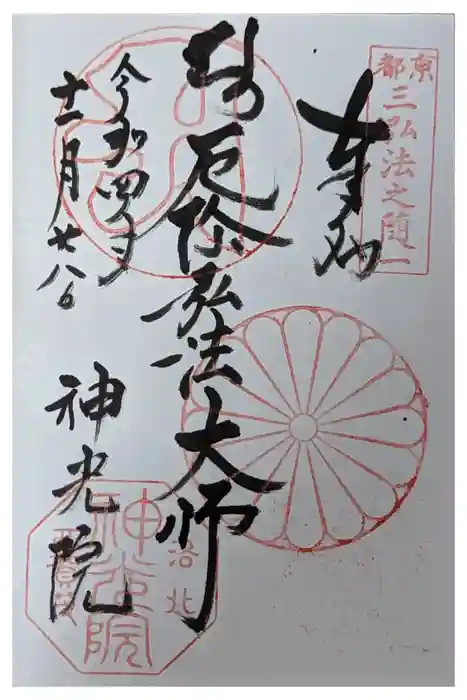 京都
三弘法之随一
奉納
厄除弘法大師
令和四年
十一月廿八日
神光院
洛北
神光院
西賀茂